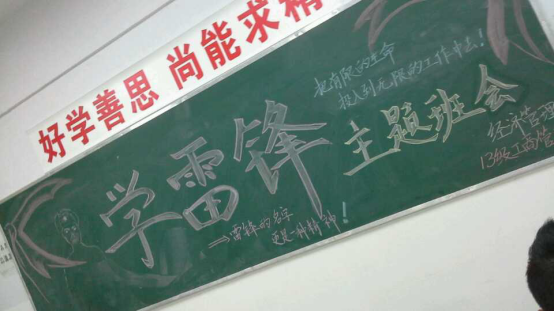 好学善思 尚能求精
把有限的生命
投入到无限的工作中去！
学雷锋 主题班会
经济管理
13级工商管
→雷锋的名字
更是一种精神！